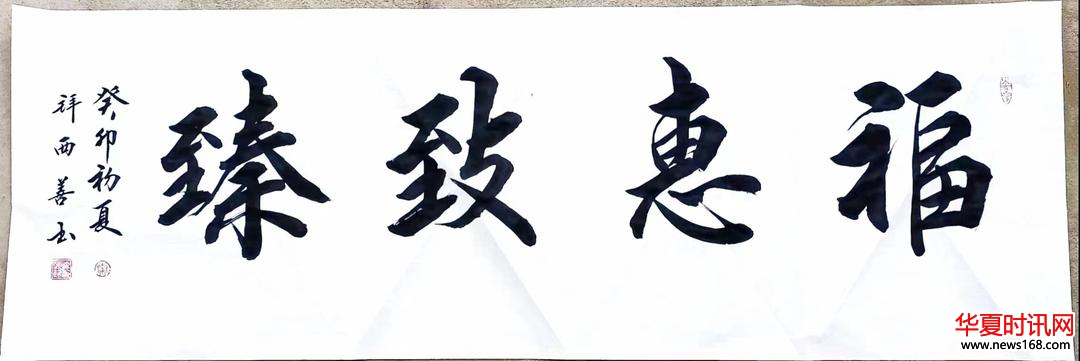 福惠致臻
癸卯初夏
祥西善书
华夏时讯网
www.news168.com